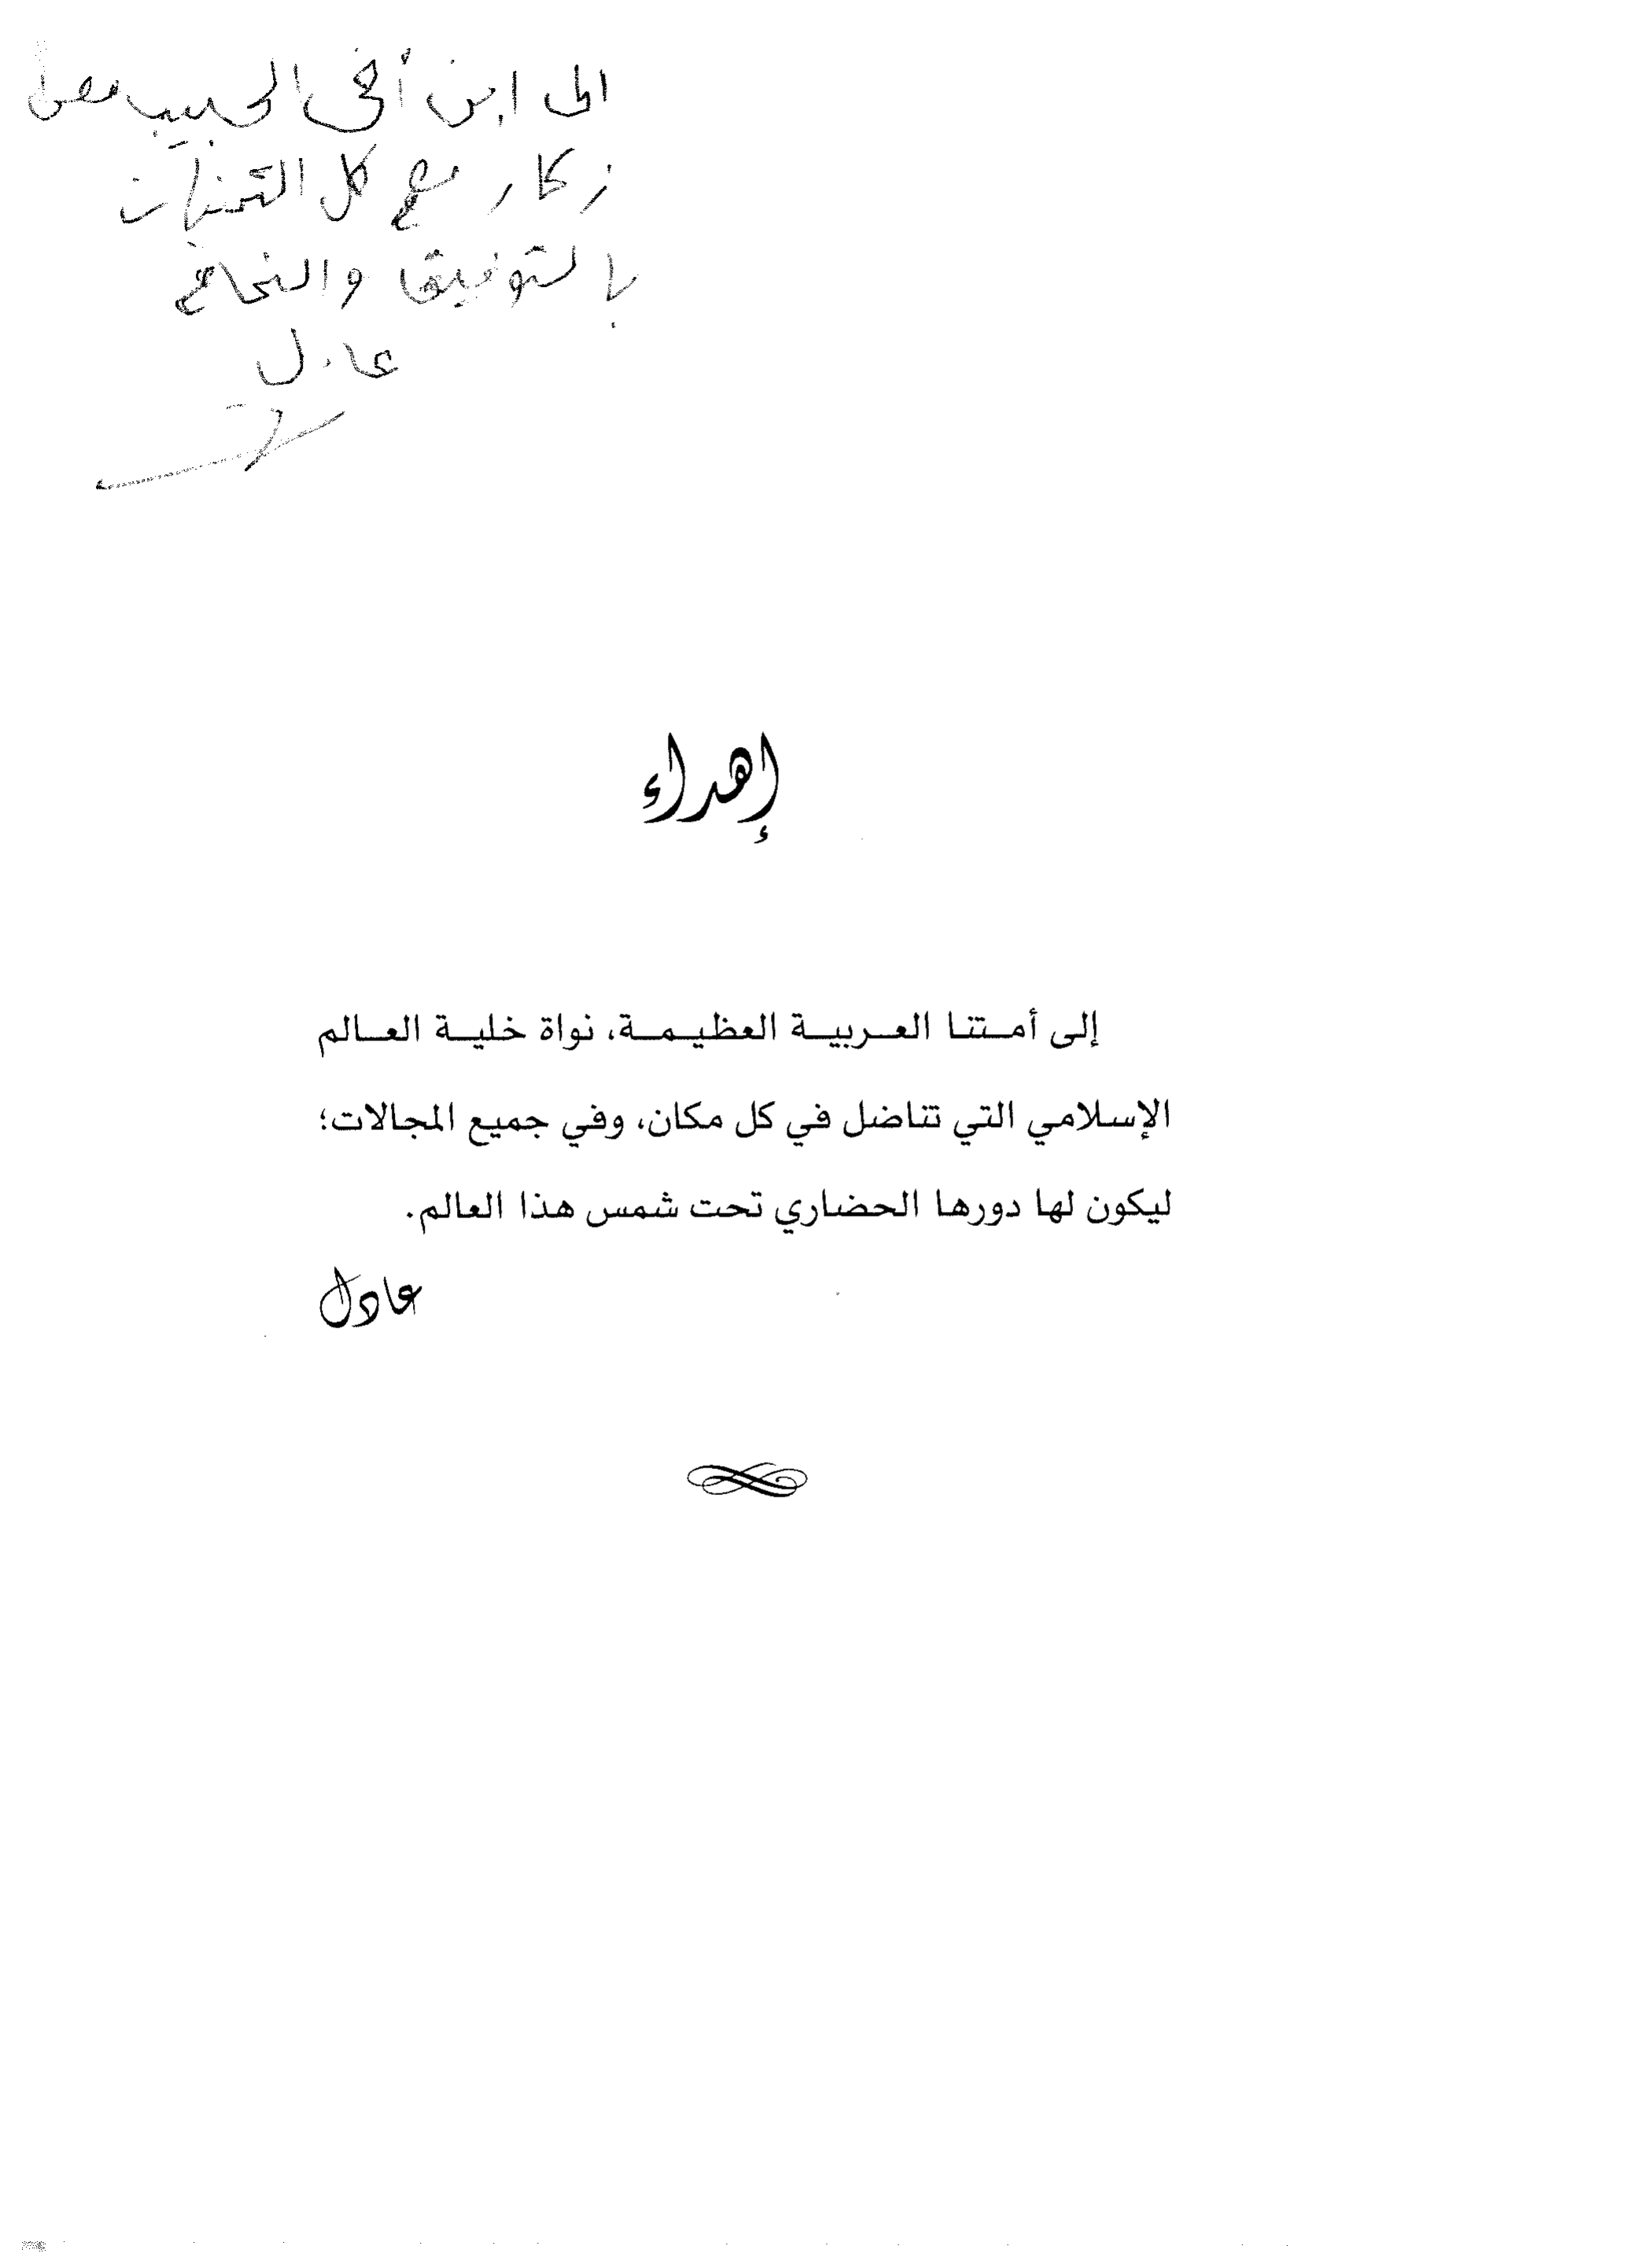 الى ابن أخي الحبيب
زكار مع كل التمنيات
بالتوفيق والنجاح
عادل
إهداء
إلى أمتنا العربية العظيمة، نواة خلية العالم
الإسلامي التي تناضل في كل مكان، وفي جميع المجالات؛
ليكون لها دورها الحضاري تحت شمس هذا العالم.
عادل